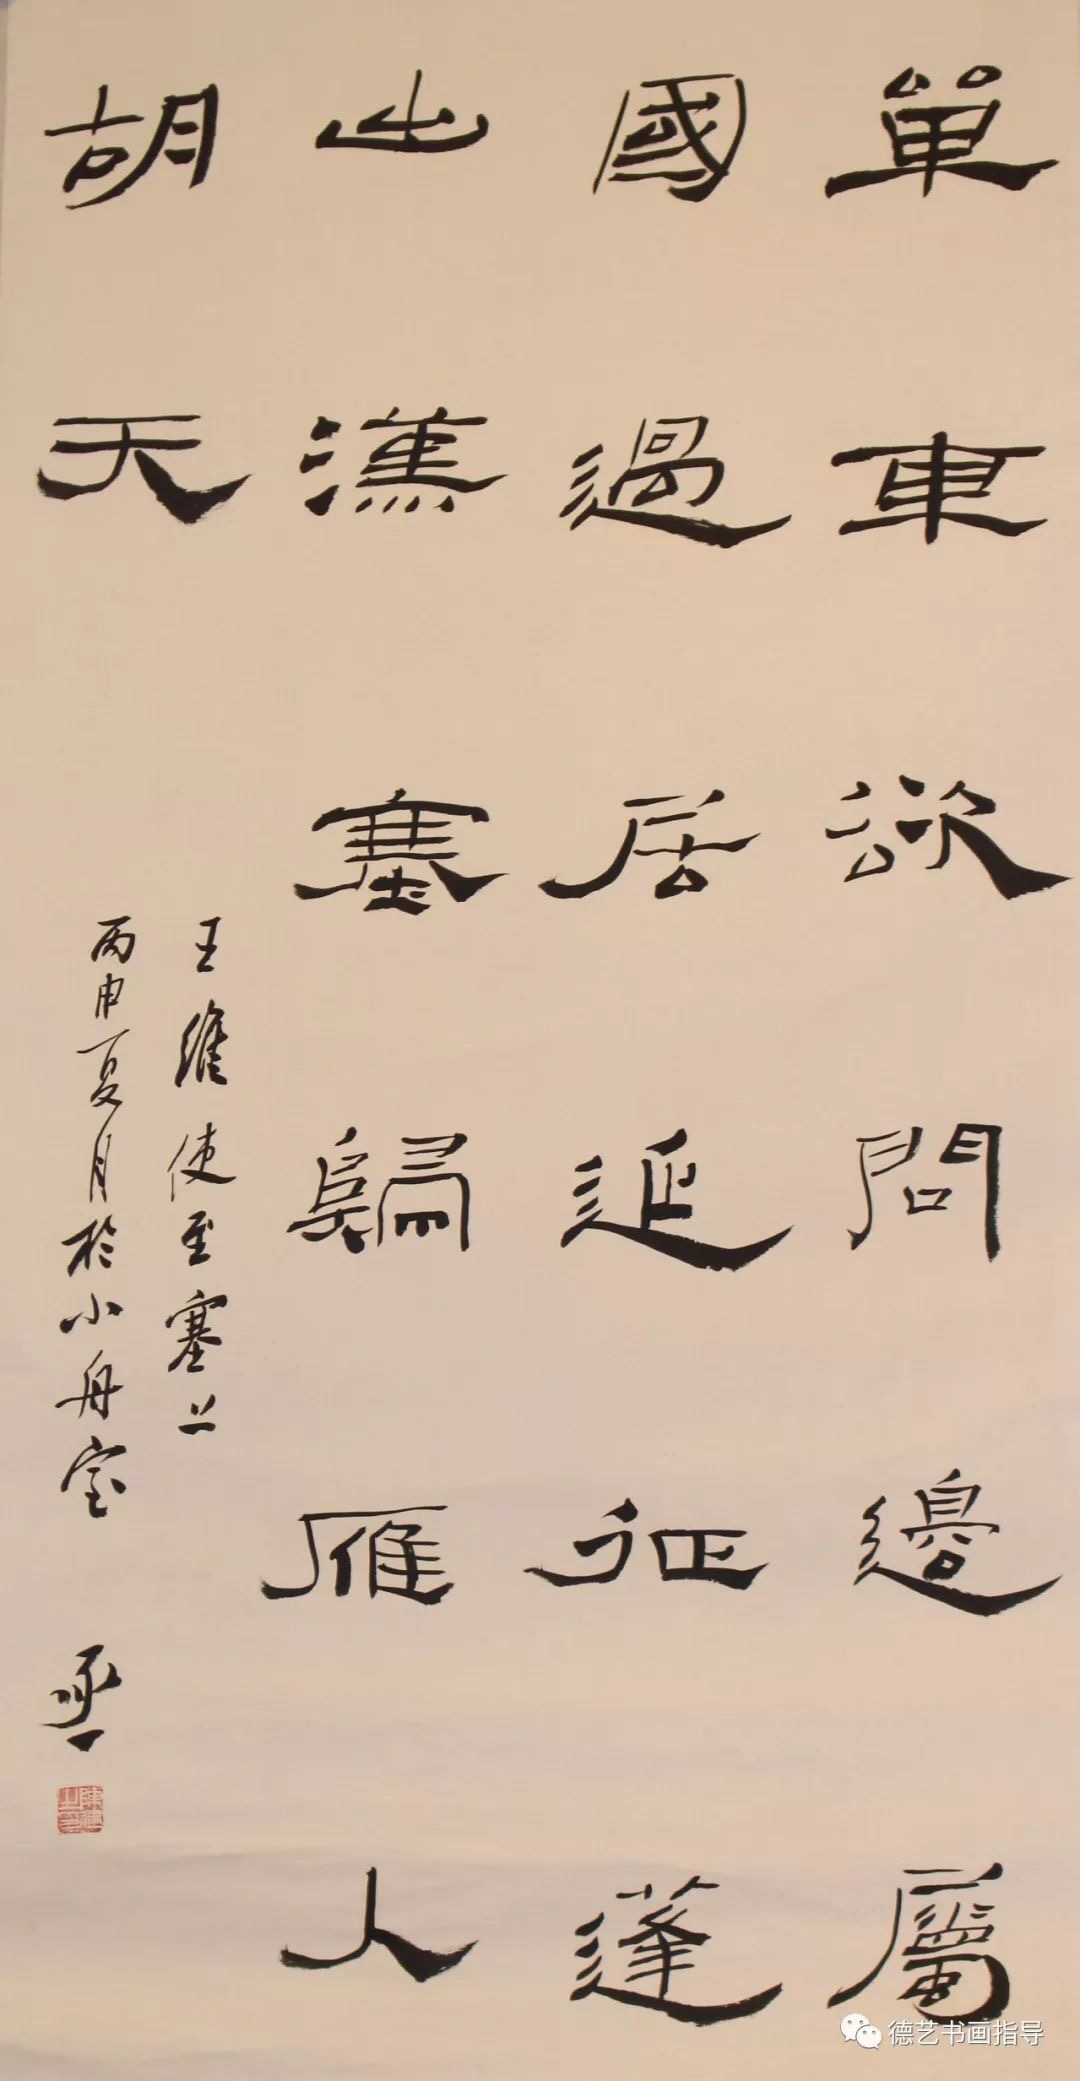 單車欲問邊屬
國過居延征蓬
出漢塞歸雁人
胡天
王維使至塞上
丙申夏月於小舟室
德艺书画指导